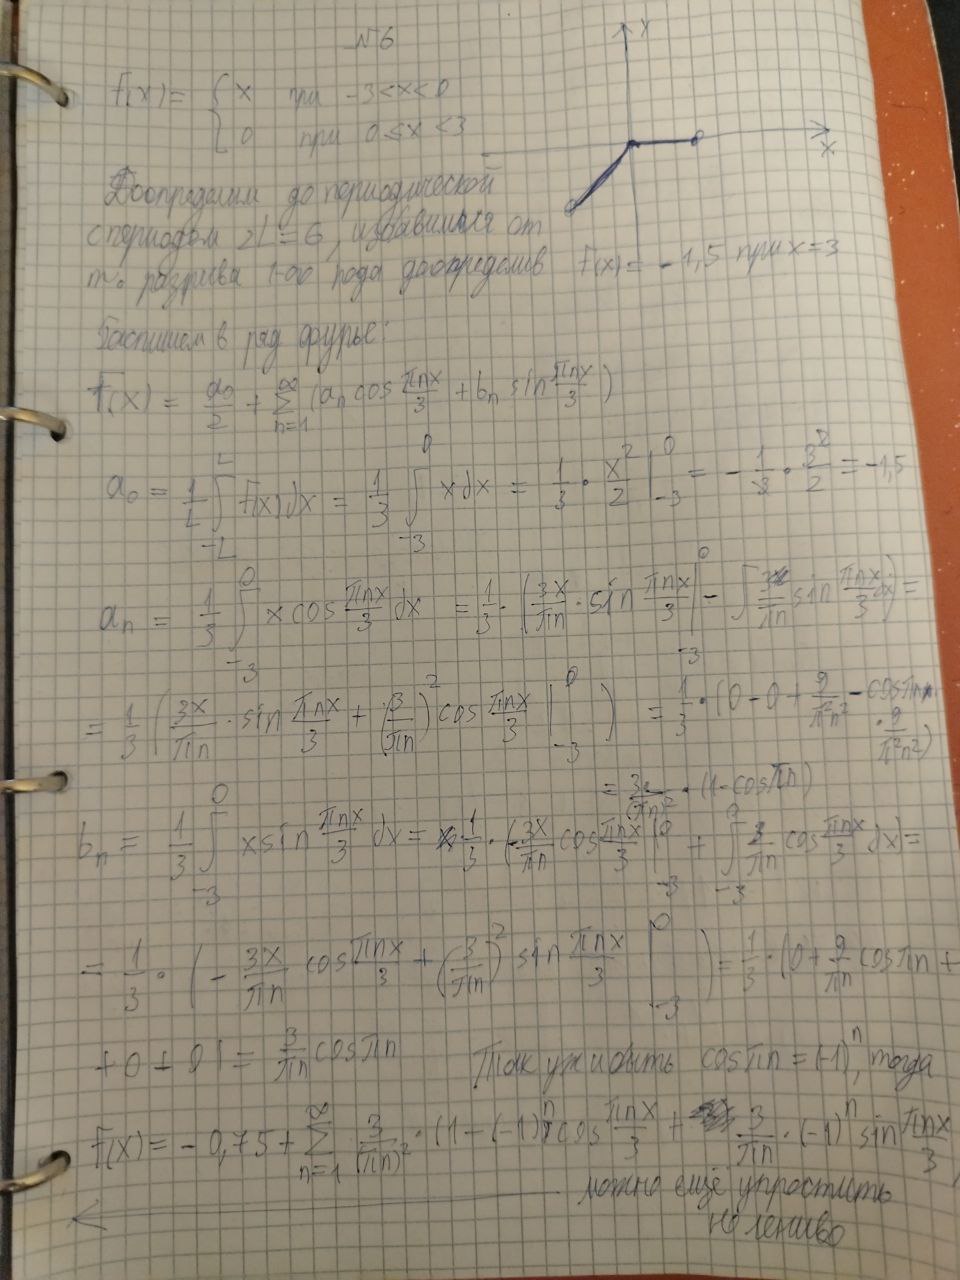 №6
y
f(x) = { x при -3<x<0
0 при 0≤x<3
x
Доопределим до периодической
с периодом 2L=6, избавимся от
т. разрыва 1-го рода доопределив f(x) = -1,5 при x=3
Распишем в ряд фурье:
f(x) = a₀/2 + ∑_{n=1}^{∞} (aₙ cos πnx/3 + bₙ sin πnx/3)
a₀ = 1/L ∫_{-L}^{L} f(x)dx = 1/3 ∫_{-3}^{0} xdx = 1/3 · x²/2 |_{-3}^{0} = -1/3 · 3²/2 = -1,5
aₙ = 1/3 ∫_{-3}^{0} x cos πnx/3 dx = 1/3 · (3x/πn · sin πnx/3 |_{-3}^{0} - ∫ 3/πn sin πnx/3 dx) =
= 1/3 (3x/πn · sin πnx/3 + (3/πn)² cos πnx/3 |_{-3}^{0}) = 1/3 · (0 - 0 + 9/π²n² - cos πn · 9/π²n²)
= 3/(πn)² · (1-cosπn)
bₙ = 1/3 ∫_{-3}^{0} x sin πnx/3 dx = 1/3 · (-3x/πn cos πnx/3 |_{-3}^{0} + ∫_{-3}^{0} 3/πn cos πnx/3 dx) =
= 1/3 · (-3x/πn cos πnx/3 + (3/πn)² sin πnx/3 |_{-3}^{0}) = 1/3 · (0 + 9/πn cos πn +
+ 0 + 0) = 3/πn cos πn Так уж и быть cos πn = (-1)ⁿ, тогда
f(x) = -0,75 + ∑_{n=1}^{∞} 3/(πn)² · (1-(-1)ⁿ) cos πnx/3 + 3/πn · (-1)ⁿ sin πnx/3
можно ещё упростить
но лениво